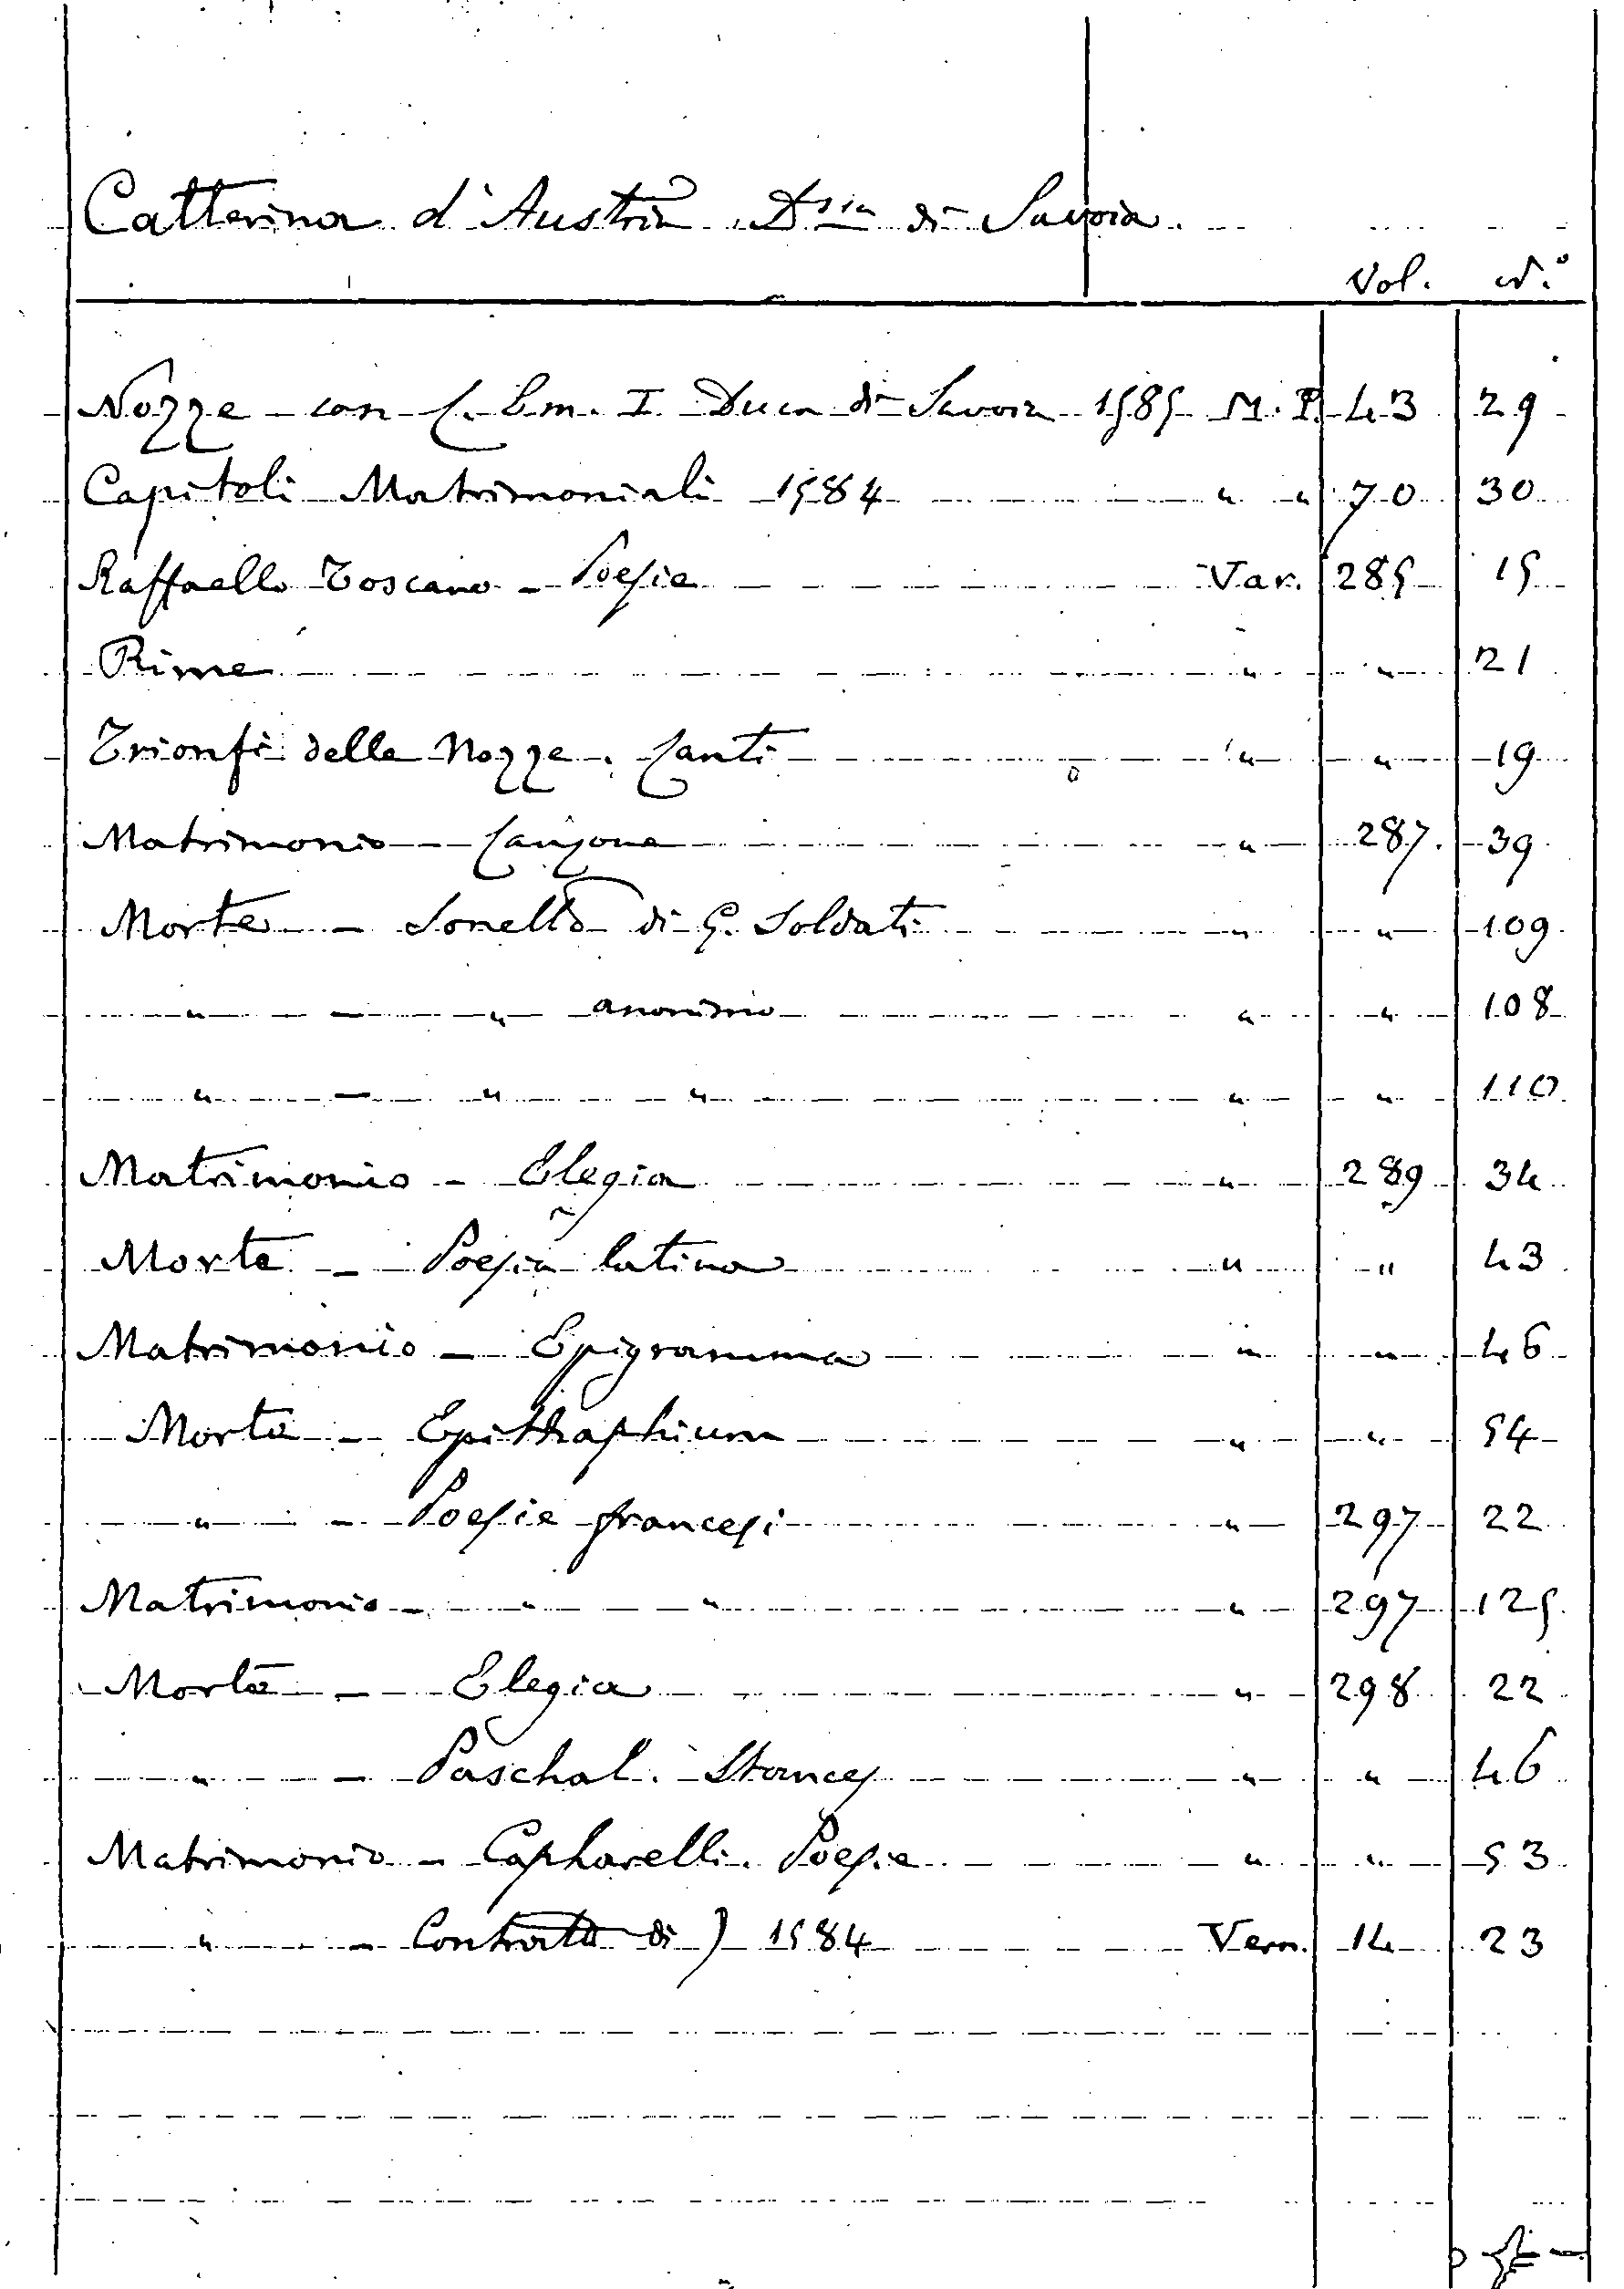 Catterina d'Austria Dssa di Savoia.
Vol. N.°
Nozze con C. Em. I Duca di Savoia 1585 M. P. 43 29
Capitoli Matrimoniali 1584 " " 70 30
Raffaello Toscano - Poesie Var. 285 15
Rime " " 21
Trionfi delle Nozze. Canti " " 19
Matrimonio - Canzone " 287. 39
Morte - Sonetto di G. Soldati " " 109
" - " anonimo " " 108
" - " " " " 110
Matrimonio - Elegia " 289 34
Morte - Poesia latina " " 43
Matrimonio - Epigramma " " 46
Morte - Epithaphium " " 54
" - Poesie francesi " 297 22
Matrimonio - " " " 297 125
Morte - Elegia " 298 22
" - Paschal. Stances " " 46
Matrimonio - Capharelli. Poesie " " 53
" - Contratto di) 1584 Vern. 14 23